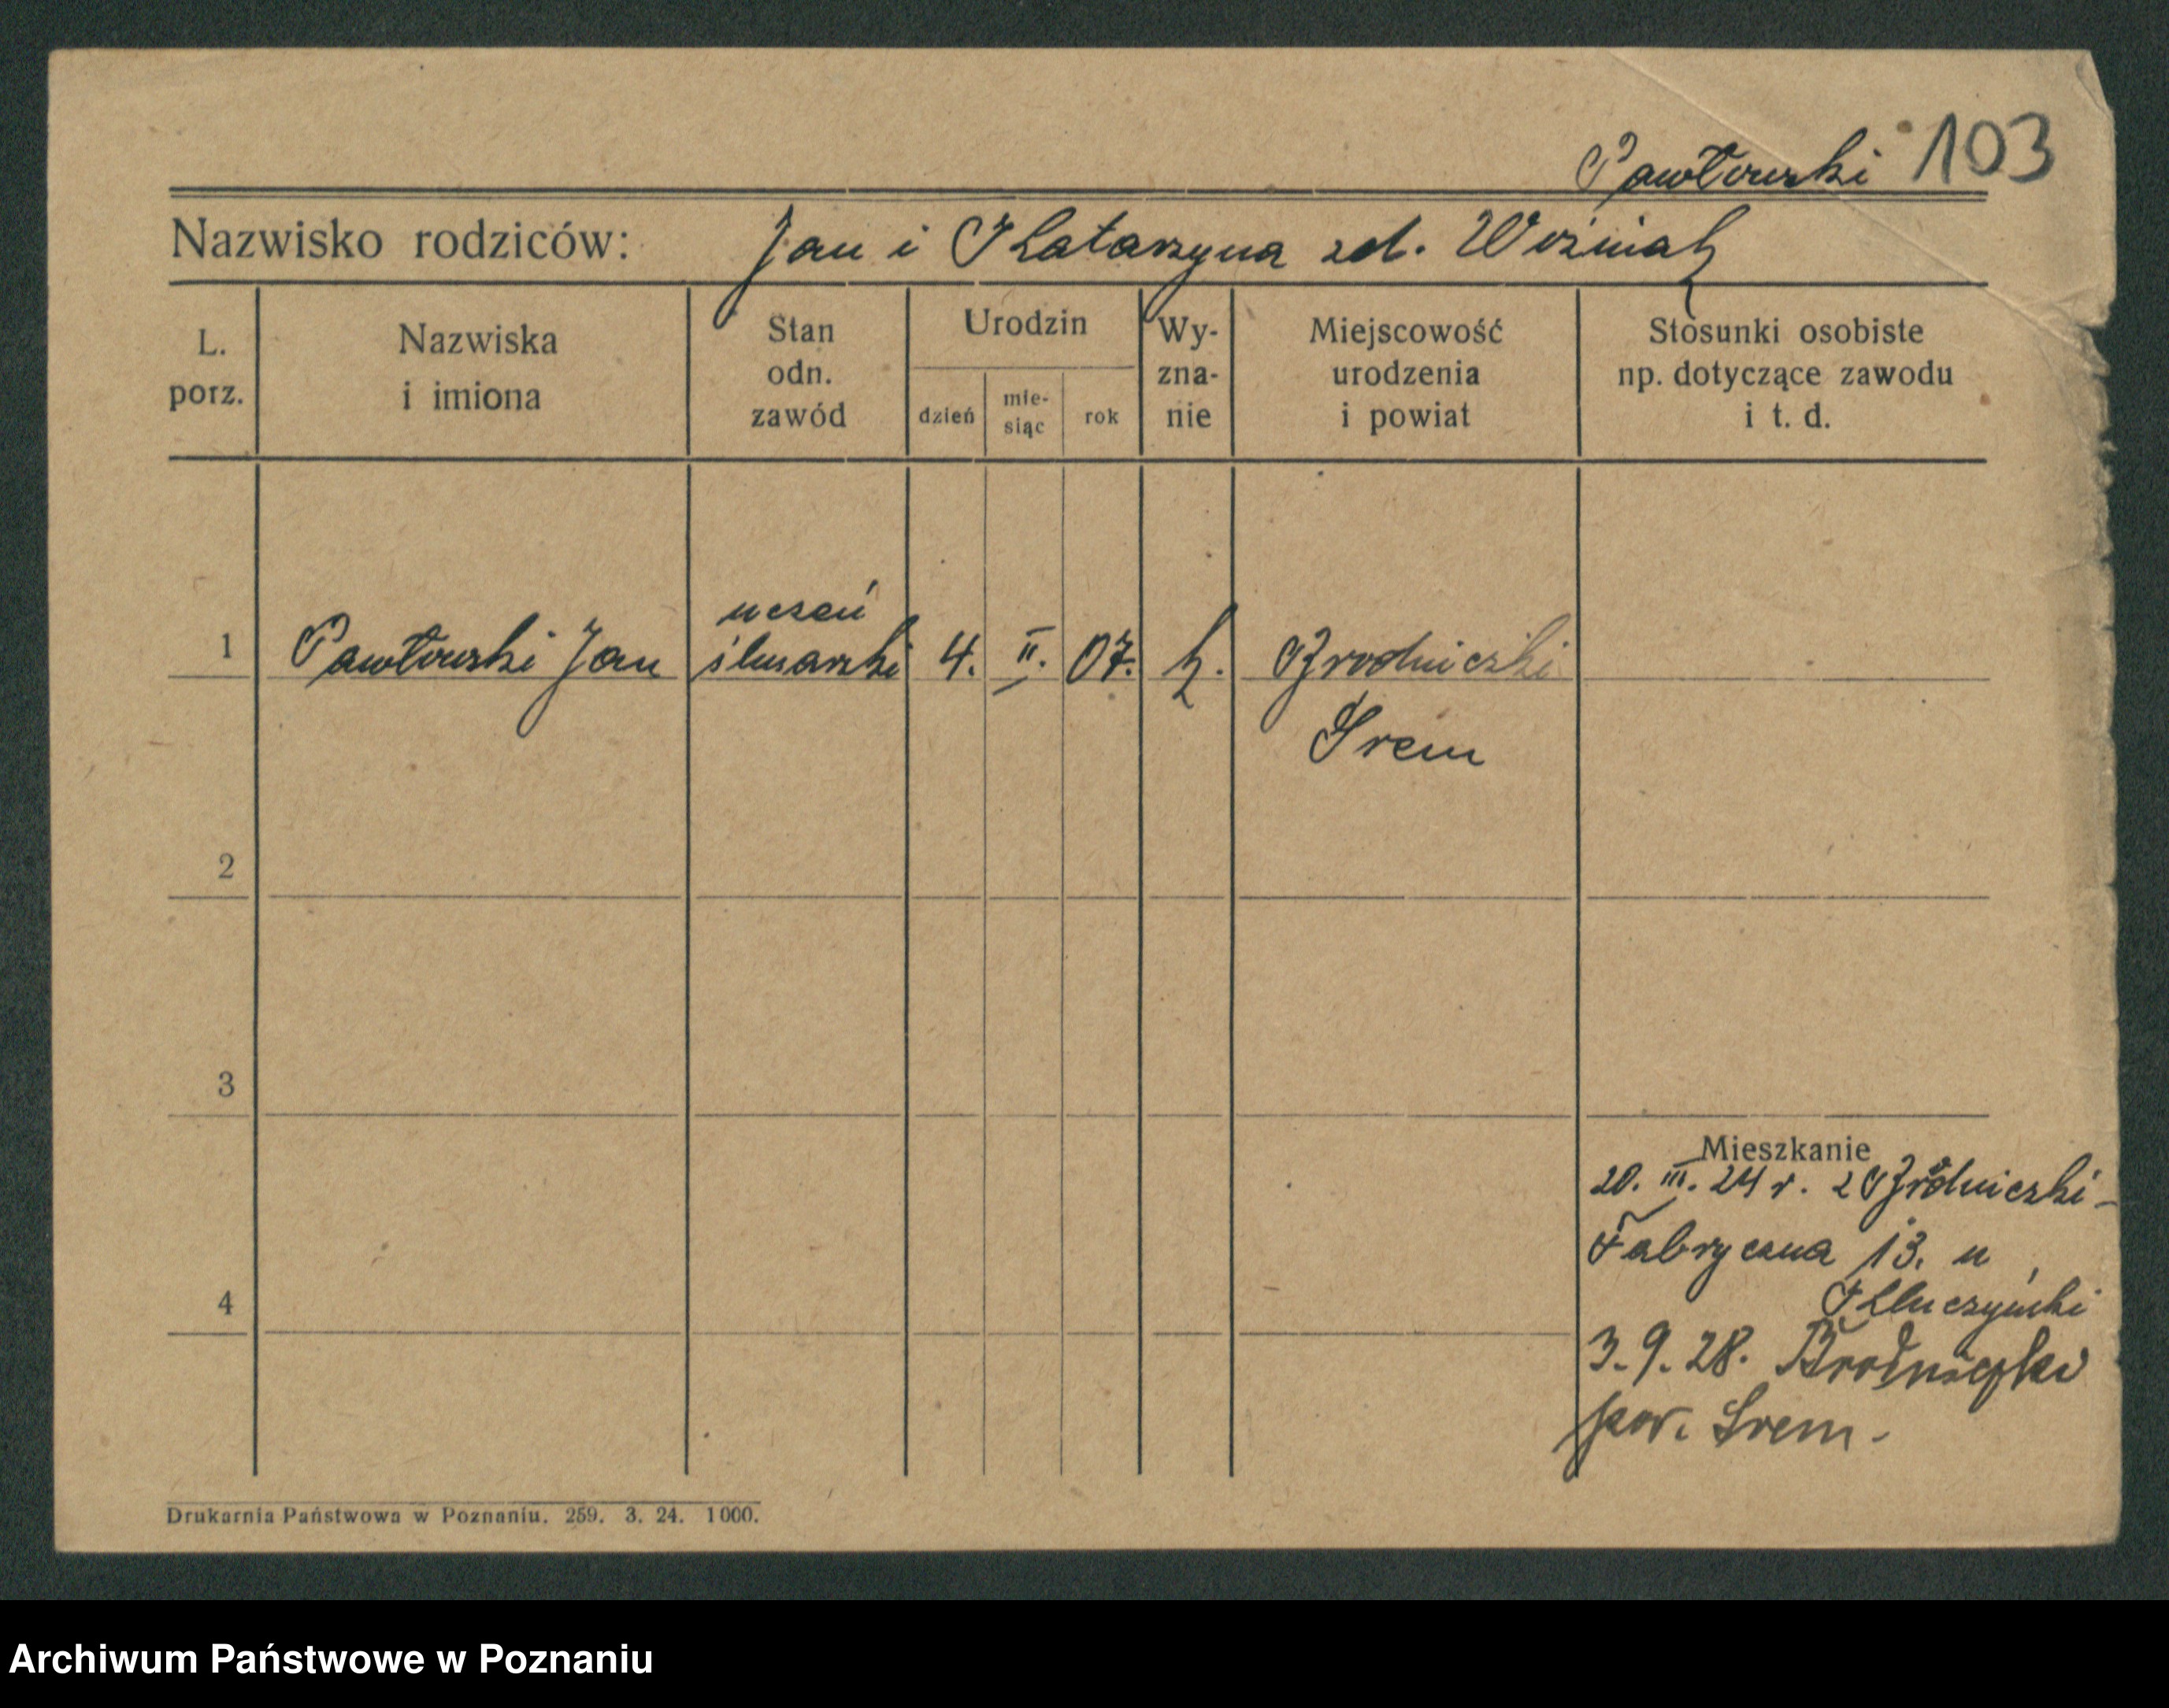 Pawłowski 103
Nazwisko rodziców: Jan i Katarzyna zd. Woźniak
L. porz.
Nazwiska i imiona
Stan odn. zawód
Urodzin
dzień
mie-siąc
rok
Wy-zna-nie
Miejscowość urodzenia i powiat
Stosunki osobiste np. dotyczące zawodu i t. d.
1 Pawłowski Jan uczeń ślusarski 4. II. 07. k. Brodniczki
Śrem
2
3
4
Mieszkanie
20. III. 24 r. z Brodniczki -
Fabryczna 13. u
Kluczyński
3. 9. 28. Brodniczki
pow. Śrem -
Drukarnia Państwowa w Poznaniu. 259. 3. 24. 1000.
Archiwum Państwowe w Poznaniu